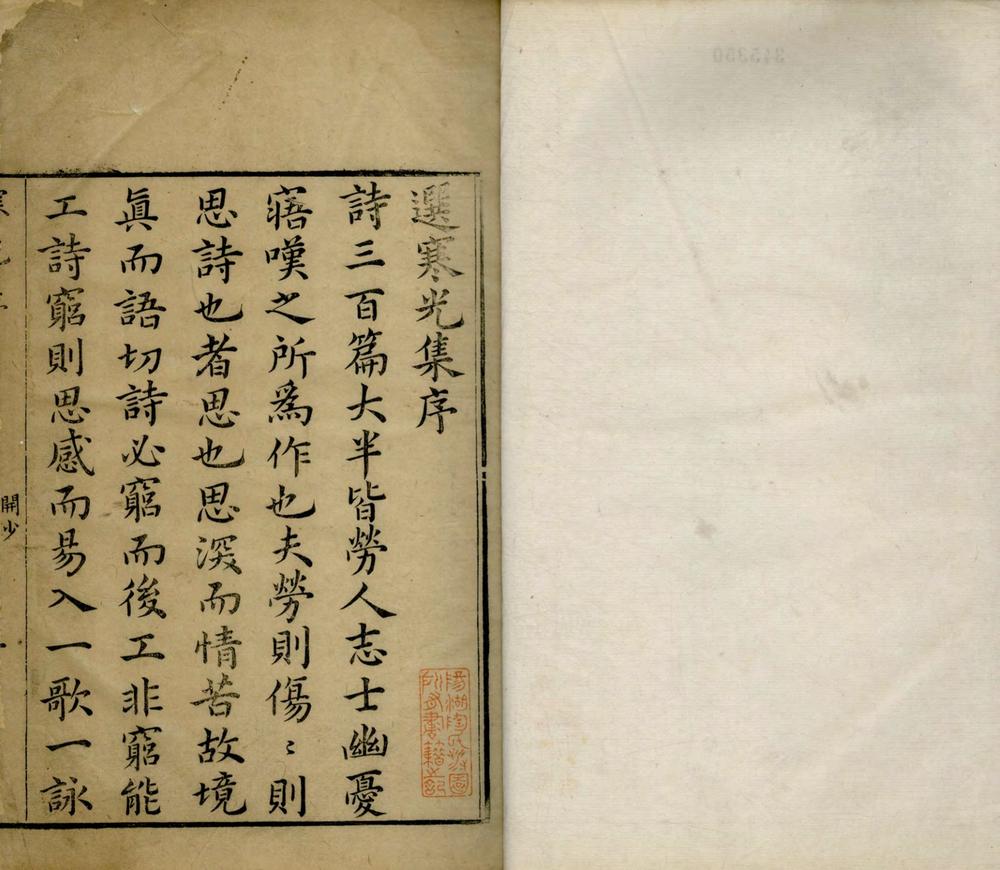 選寒光集序
詩三百篇大半皆勞人志士幽憂
寤嘆之所爲作也夫勞則傷〻則
思詩也者思也思深而情苦故境
眞而語切詩必窮而後工非窮能
工詩窮則思感而易入一歌一詠
開少
陽湖陶氏涉園
所有書籍之記
3153350